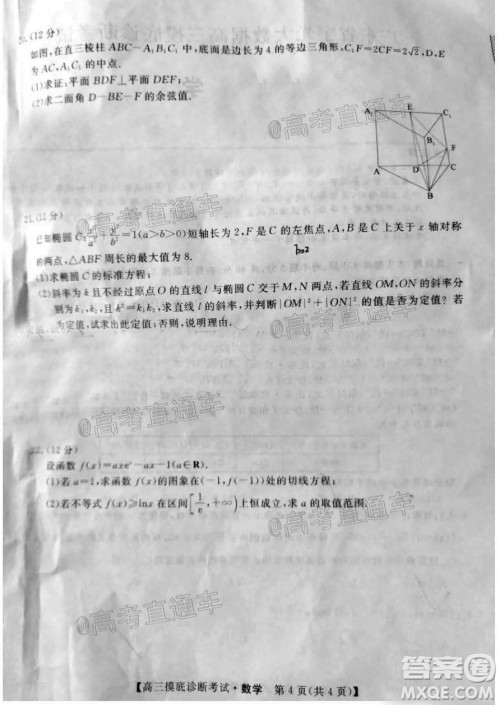 20.(12分)
如图,在直三棱柱ABC-A₁B₁C₁中,底面是边长为4的等边三角形,C₁F=2CF=2√2,D,E
为AC,A₁C₁的中点.
(1)求证:平面BDF⊥平面
(2)求二面角D-BE-F的余弦值.
A₁ E C₁
B₁
F
A D C
B
21.(12分)
已知椭圆C:x²/a²+y²/b²=1(a>b>0)短轴长为2,F是C的左焦点,A,B是C上关于x轴对称
b=2
的两点,△ABF周长的最大值为8.
(1)求椭圆C的标准方程;
(2)斜率为k且不经过原点O的直线l与椭圆C交于M,N两点,若直线OM,ON的斜率分
别为k₁,k₂,且k²=k₁k₂,求直线l的斜率,并判断|OM|²+|ON|²的值是否为定值?若
为定值,试求出此定值;否则,说明理由.
22.(12分)
设函数f(x)=axeˣ-ax-1(a∈R).
(1)若a=1,求函数f(x)的图象在(-1,f(-1))处的切线方程;
(2)若不等式f(x)≥lnx在区间[1/e,+∞)上恒成立,求a的取值范围.
@高考直通车
@高考直通车
@高考直通车
@高考直通车
【高三摸底诊断考试·数学 第4页(共4页)】
答案圈
MXQE.COM